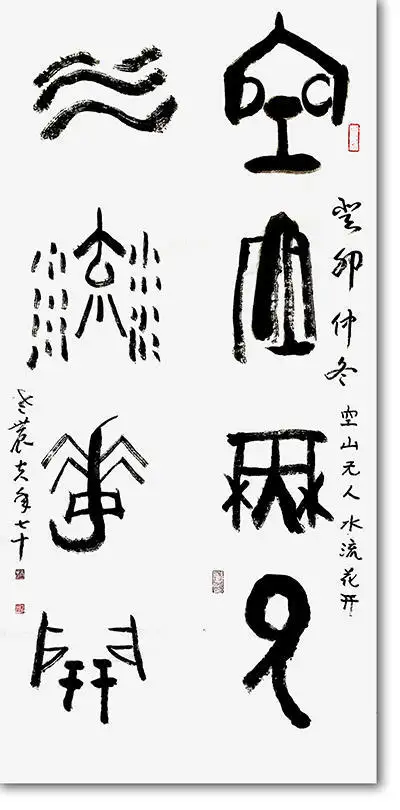 癸卯仲冬 空山无人水流花开
空山無人
水流花開
老農 年七十